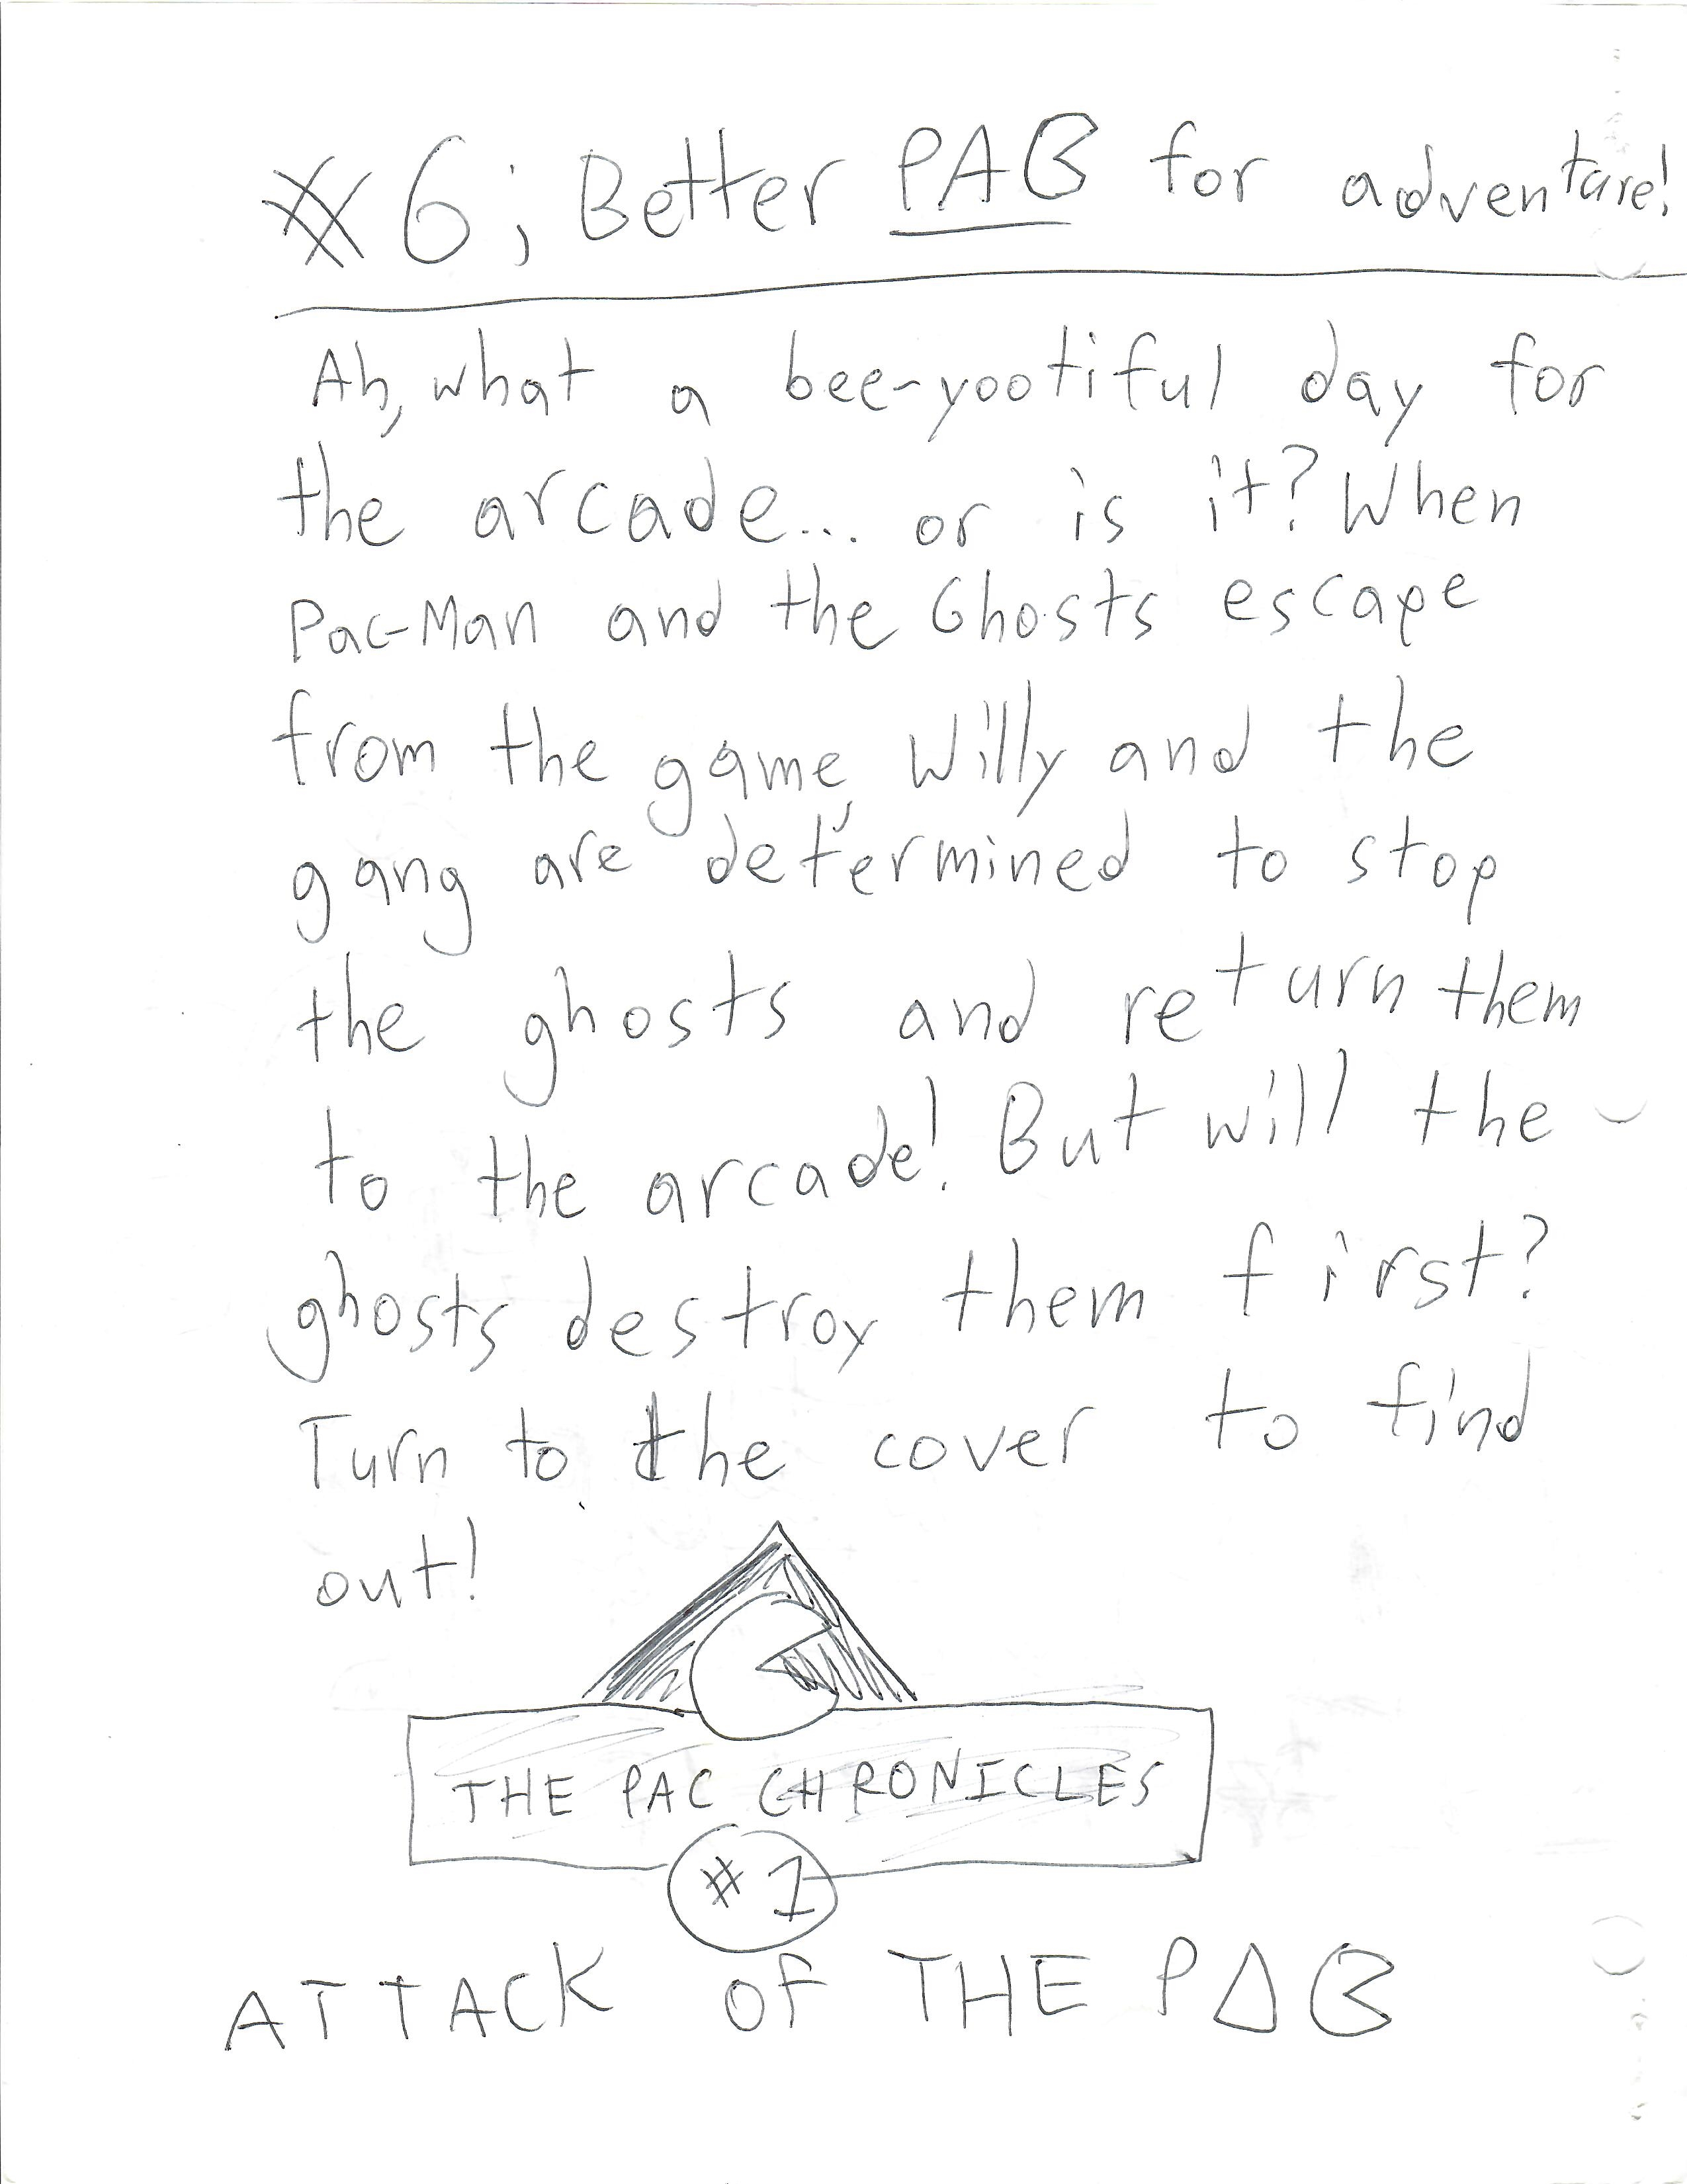 #6; Better PAC for adventure!
Ah, what a bee-yootiful day for
the arcade... or is it? When
Pac-Man and the Ghosts escape
from the game, Willy and the
gang are determined to stop
the ghosts and return them
to the arcade! But will the
ghosts destroy them first?
Turn to the cover to find
out!
THE PAC CHRONICLES
#1
ATTACK OF THE PAC